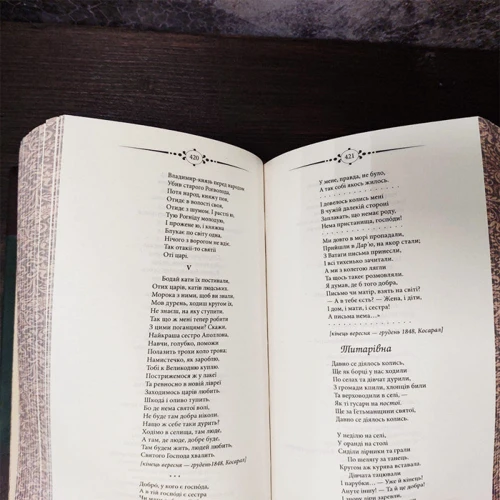 420
Владимир-князь перед народом
Убив старого Рогволода,
Потя народ, княжну поя,
Отиде в волості своя,
Отиде з шумом. І растлі ю,
Тую Рогніду молодую.
І прожене ю, і княжна
Блукає по світу одна,
Нічого з ворогом не вдіє.
Так отакії-то святії
Оті царі.
V
Бодай кати їх постинали,
Отих царів, катів людських.
Морока з ними, щоб ви знали,
Мов дурень, ходиш кругом їх,
Не знаєш, на яку ступить.
Так що ж мені тепер робити
З цими поганцями? Скажи,
Найкраща сестро Аполлона,
Навчи, голубко, поможи
Полазить трохи коло трона:
Намистечко, як зароблю,
Тобі к Великодню куплю.
Пострижемося ж у лакеї
Та ревносно в новій лівреї
Заходимось царів любить.
Шкода і оливо тупить.
Бо де нема святої волі,
Не буде там добра ніколи.
Нащо ж себе таки дурить?
Ходімо в селища, там люде,
А там, де люде, добре буде,
Там будем жить, людей любить,
Святого Господа хвалить.
[кінець вересня — грудень 1848, Косарал]
* * *
Добро, у кого є господа,
А в тій господі є сестра
421
У мене, правда, не було,
А так собі якось жилось.
І довелось колись мені
В чужій далекій стороні
Заплакать, що немає роду,
Нема пристанища, господи!
Ми довго в морі пропадали,
Прийшли в Дар'ю, на якор стали;
З Ватаги письма принесли,
І всі тихенько зачитали.
А ми з колегою лягли
Та щось такеє розмовляли.
Я думав, де б того добра,
Письмо чи матір, взять на світі?
— А в тебе єсть? — Жена, і діти,
І дом, і мати, і сестра!
А письма нема...»
[кінець вересня — грудень 1848, Косарал]
Титарівна
Давно се діялось колись,
Ще як борці у нас ходили
По селах та дівчат дурили,
З громади кпили, хлопців били
Та верховодили в селі, —
Як ті гусари на постої.
Ще за Гетьманщини святої,
Давно се діялось колись.
У неділю на селі,
У оранді на столі
Сиділи лірники та грали
По шелягу за танець.
Кругом аж курява вставала.
Дівчата танцювали
І парубки... — Уже й кінець!
Ануте іншу! — Та й це добра!